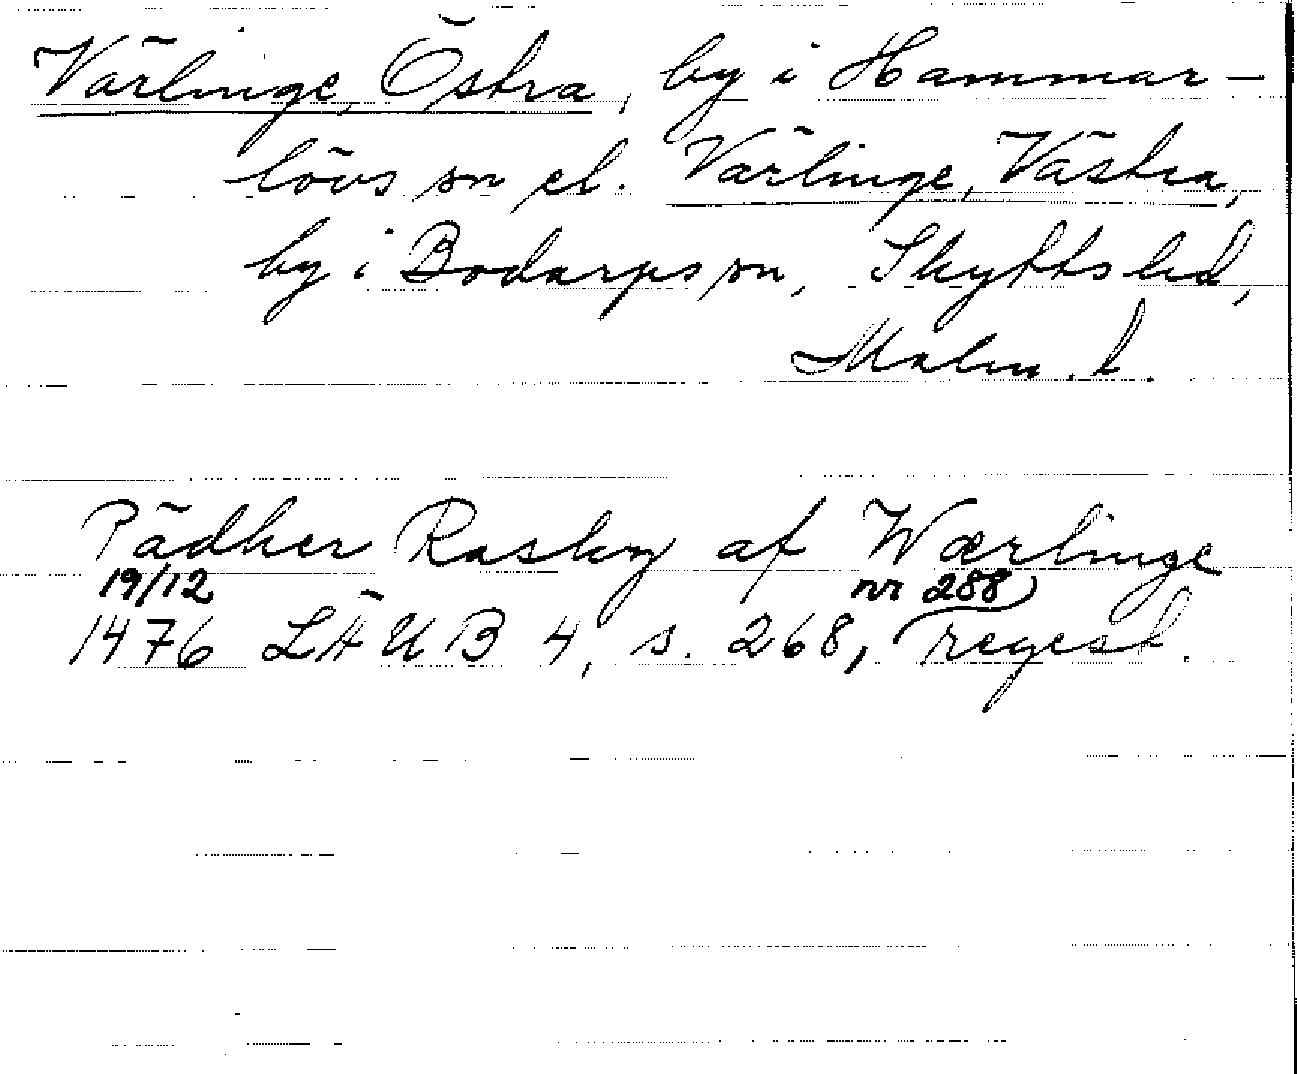 Värlinge, Östra, by i Hammar-
lövs sn el. Värlinge, Västra,
by i Bodarps sn, Skytts hd,
Malm. l.
Pädher Rasky af Wærlinge
19/12 nr 288
1476 LÄUB 4, s. 268, regest.